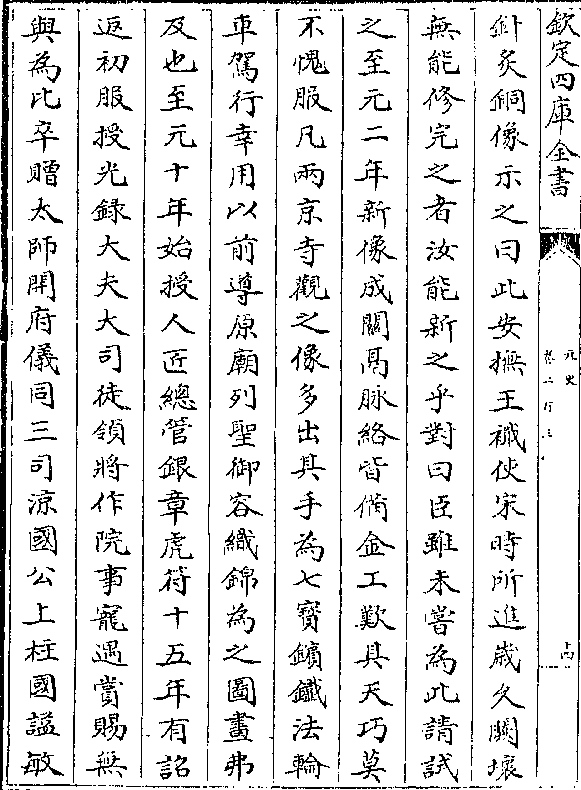 欽定四庫全書
元史
十四
針炙銅像示之曰此安撫王檝使宋時所進歲久闕壞
無能修完之者汝能新之乎對曰臣雖未嘗為此請試
之至元二年新像成關鬲脉絡皆備金工歎其天巧莫
不愧服凡兩京寺觀之像多出其手為七寶鑌鐵法輪
車駕行幸用以前導原廟列聖御容織錦為之圖畫弗
及也至元十年始授人匠總管銀章虎符十五年有詔
返初服授光録大夫大司徒領將作院事寵遇賞賜無
與為比卒贈太師開府儀同三司涼國公上柱國諡敏